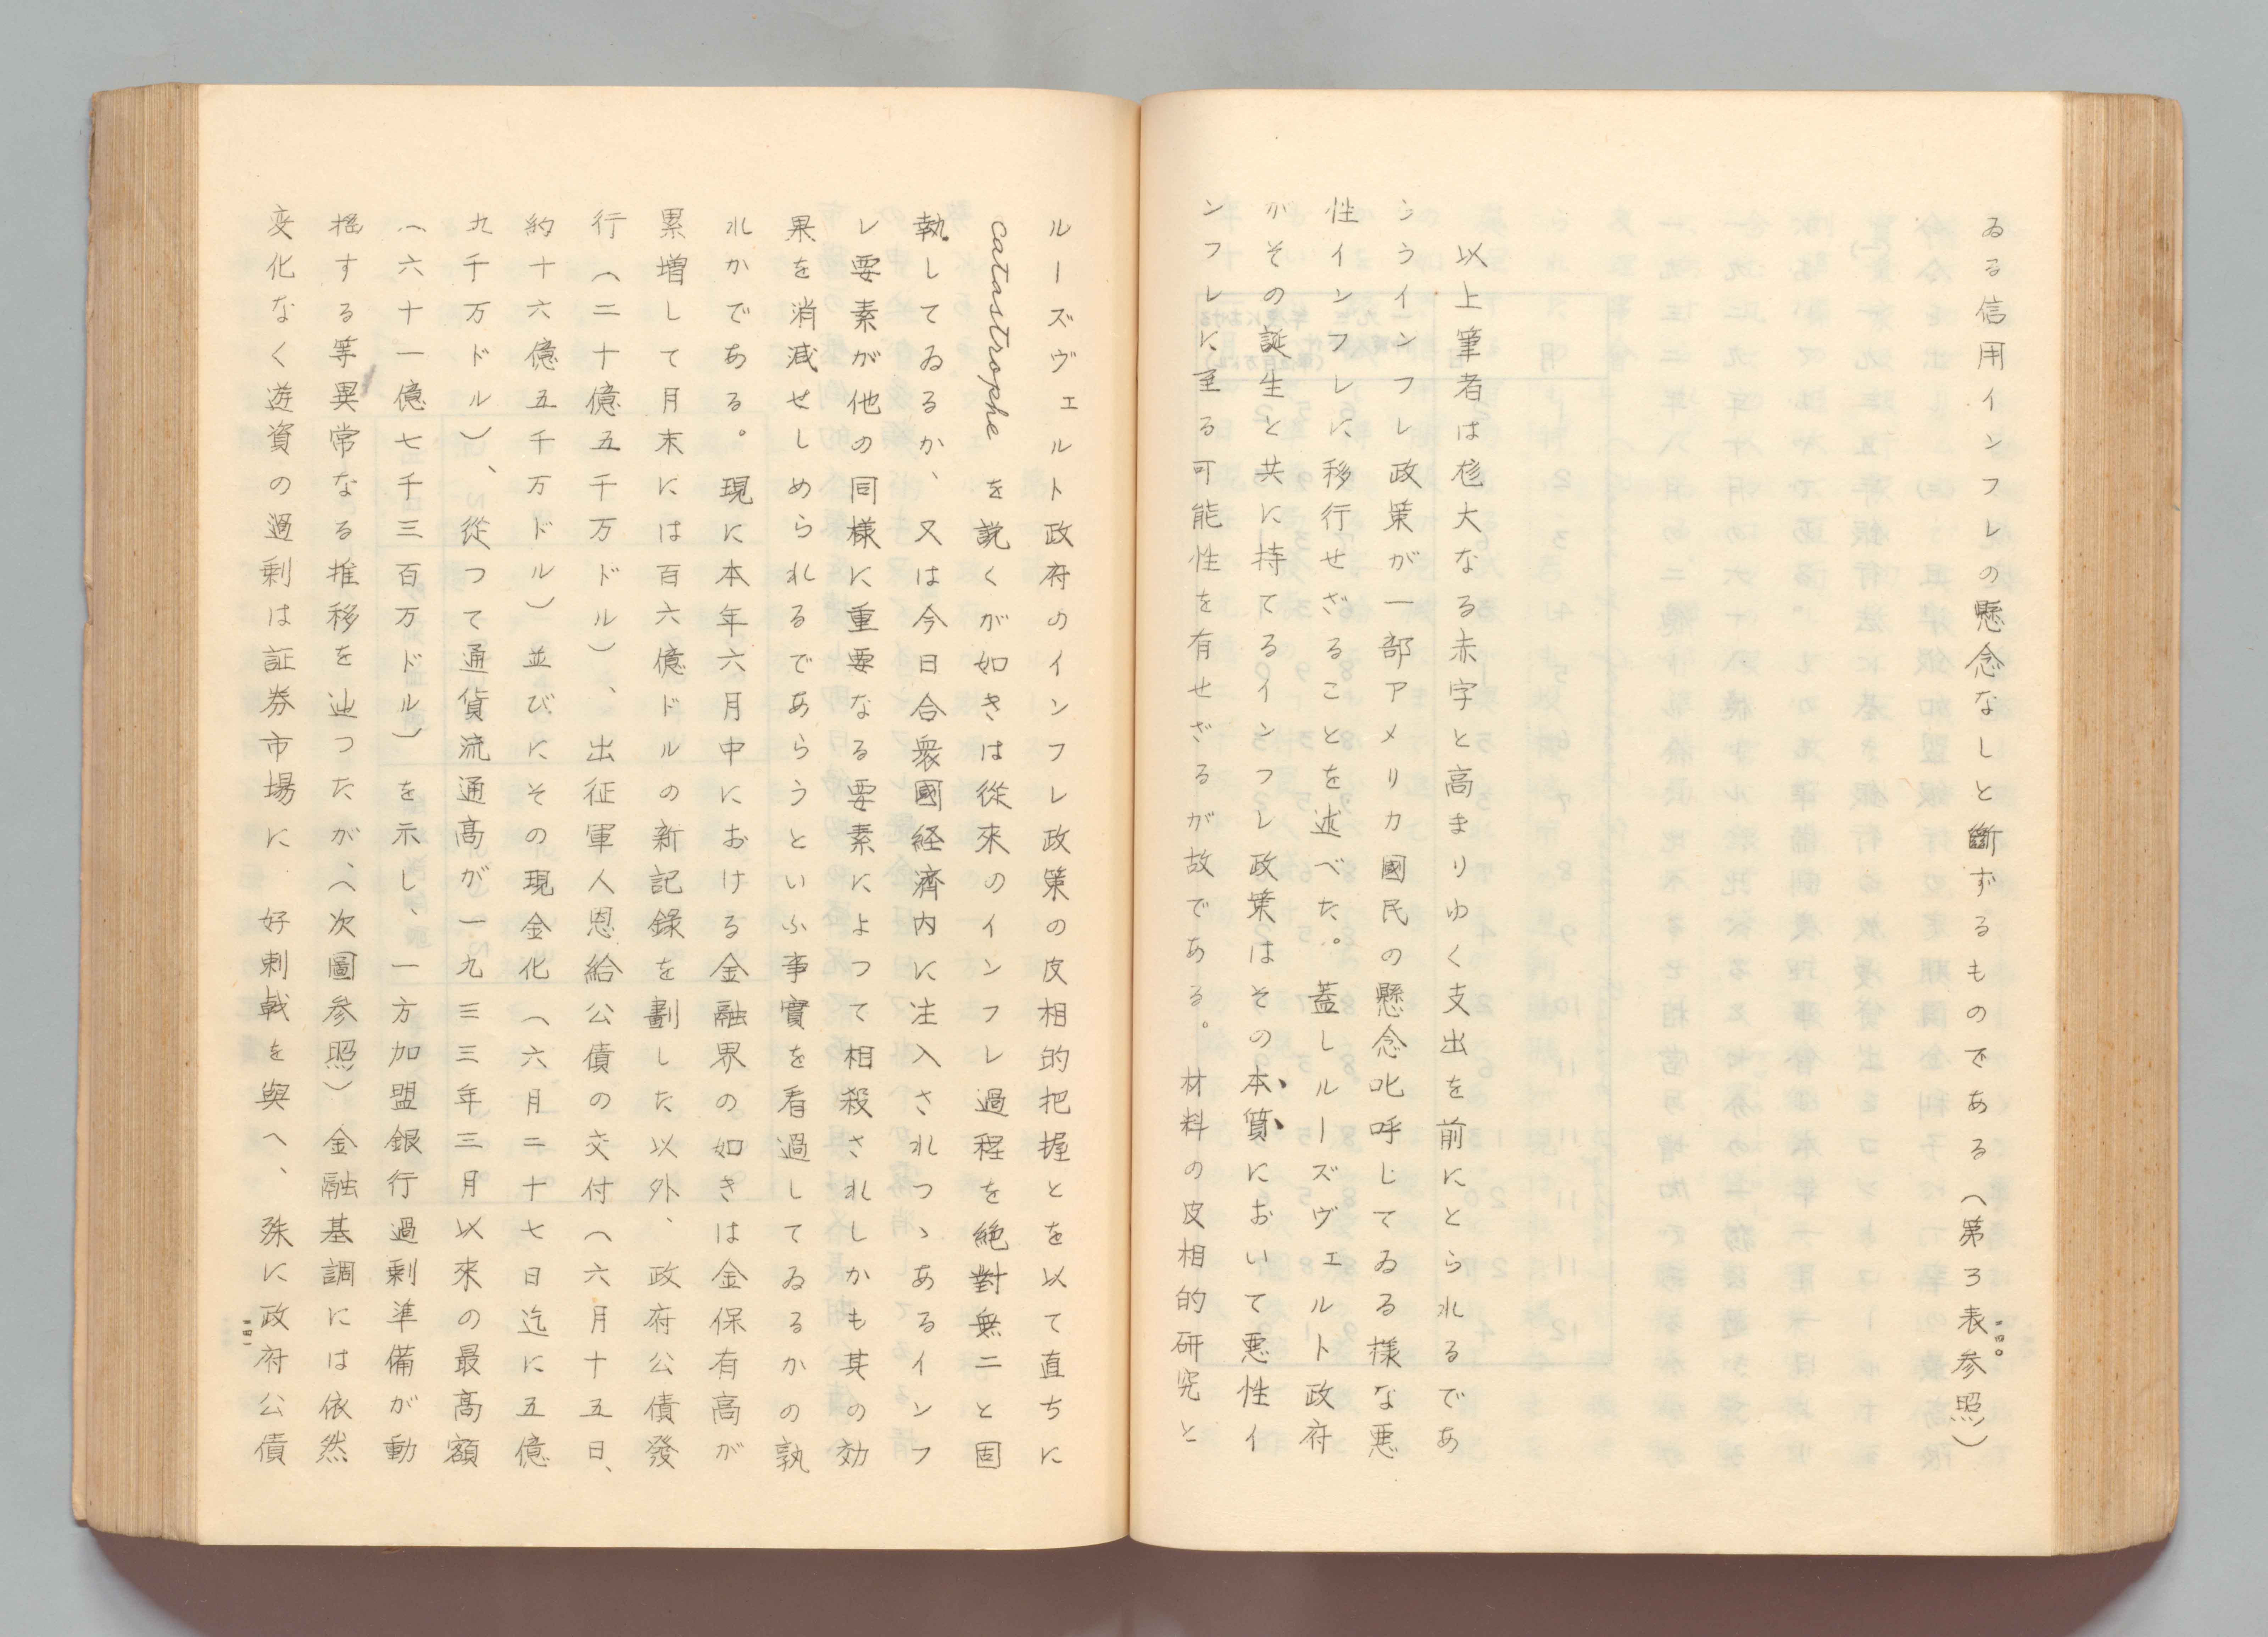 ゐる信用インフレの懸念なしと斷ずるものである（第３表参照）
以上筆者は尨大なる赤字と高まりゆく支出を前にとられるであ
らうインフレ政策が一部アメリカ國民の懸念叱呼じてゐる様な悪
性インフレに移行せざることを述べた。蓋しルーズヴェルト政府
がその誕生と共に持てるインフレ政策はその本質において悪性イ
ンフレに至る可能性を有せざるが故である。材料の皮相的研究と
一四〇
ルーズヴェルト政府のインフレ政策の皮相的把握とを以て直ちに
catastropheを説くが如きは從來のインフレ過程を絶對無二と固
執してゐるか、又は今日合衆國経済内に注入されつゝあるインフ
レ要素が他の同様に重要なる要素によつて相殺されしかも其の効
果を消減せしめられるであらうといふ事實を看過してゐるかの孰
れかである。現に本年六月中における金融界の如きは金保有高が
累増して月末には百六億ドルの新記録を劃した以外、政府公債發
行（二十億五千万ドル）、出征軍人恩給公債の交付（六月十五日、
約十六億五千万ドル）並びにその現金化（六月二十七日迄に五億
九千万ドル）、從つて通貨流通高が一九三三年三月以來の最高額
（六十一億七千三百万ドル）を示し、一方加盟銀行過剰準備が動
揺する等異常なる推移を辿つたが、（次圖参照）金融基調には依然
変化なく遊資の過剰は証券市場に 好刺戟を與へ、殊に政府公債
一四一